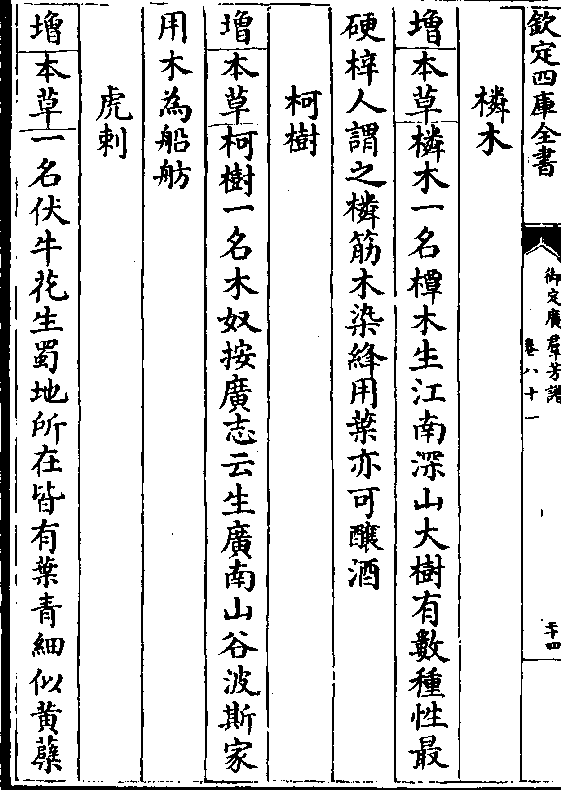 欽定四庫全書
御定廣羣芳譜
卷八十一
二十四
橉木
增本草橉木一名橝木生江南深山大樹有數種性最
硬梓人謂之橉筋木染絳用葉亦可釀酒
柯樹
增本草柯樹一名木奴按廣志云生廣南山谷波斯家
用木為船舫
虎刺
增本草一名伏牛花生蜀地所在皆有葉青細似黃蘗